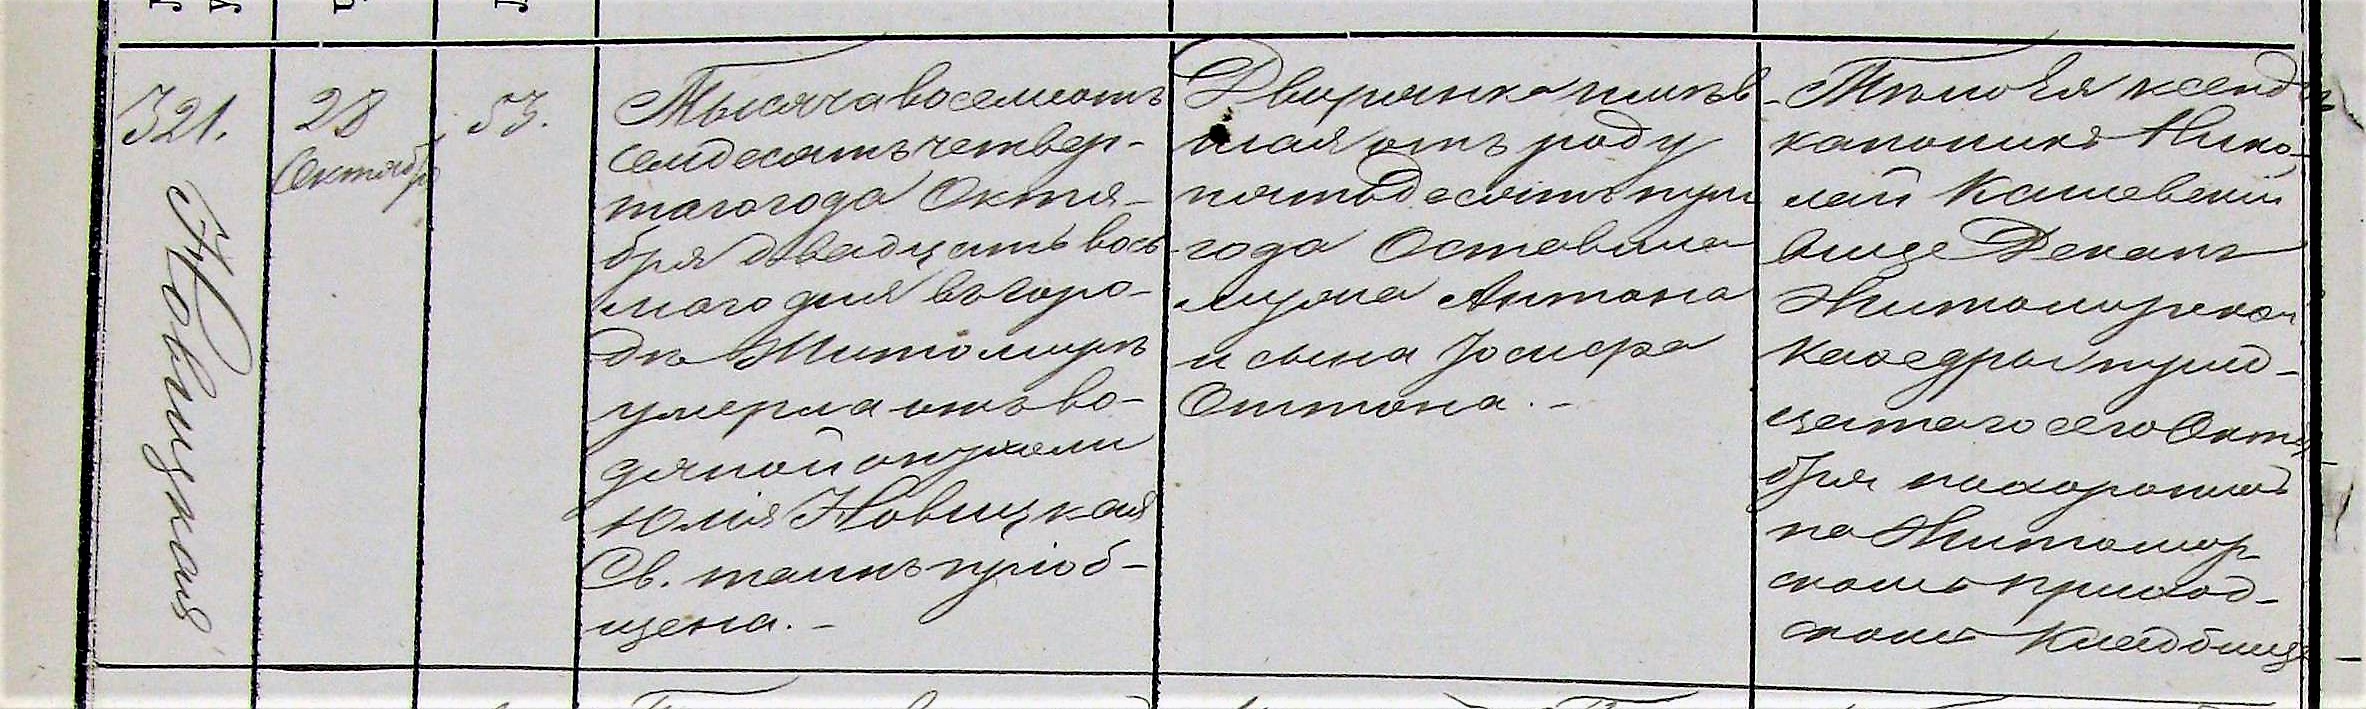 321.
Новицкая
28
Октябр
53.
Тысяча восемьсотъ
семдесятъ четвер-
таго года Октя-
бря двадцать вось
маго дня въ горо-
дѣ Житомирѣ
умерла отъ во-
дяной опухоли
Юлія Новицкая
Св. таинъ пріоб-
щена. -
Дворянка имѣв
шая отъ роду
пятьдесятъ три
года Оставила
мужа Антона
и сына Іосифа
Оттона. -
Тѣло Ея ксендзъ
каноникъ Нико-
лай
вице Деканъ
Житомирской
Каѳедры трид-
цатаго сего Октя
бря похоронилъ
на Житомир
скомъ приход-
скомъ Кладбище